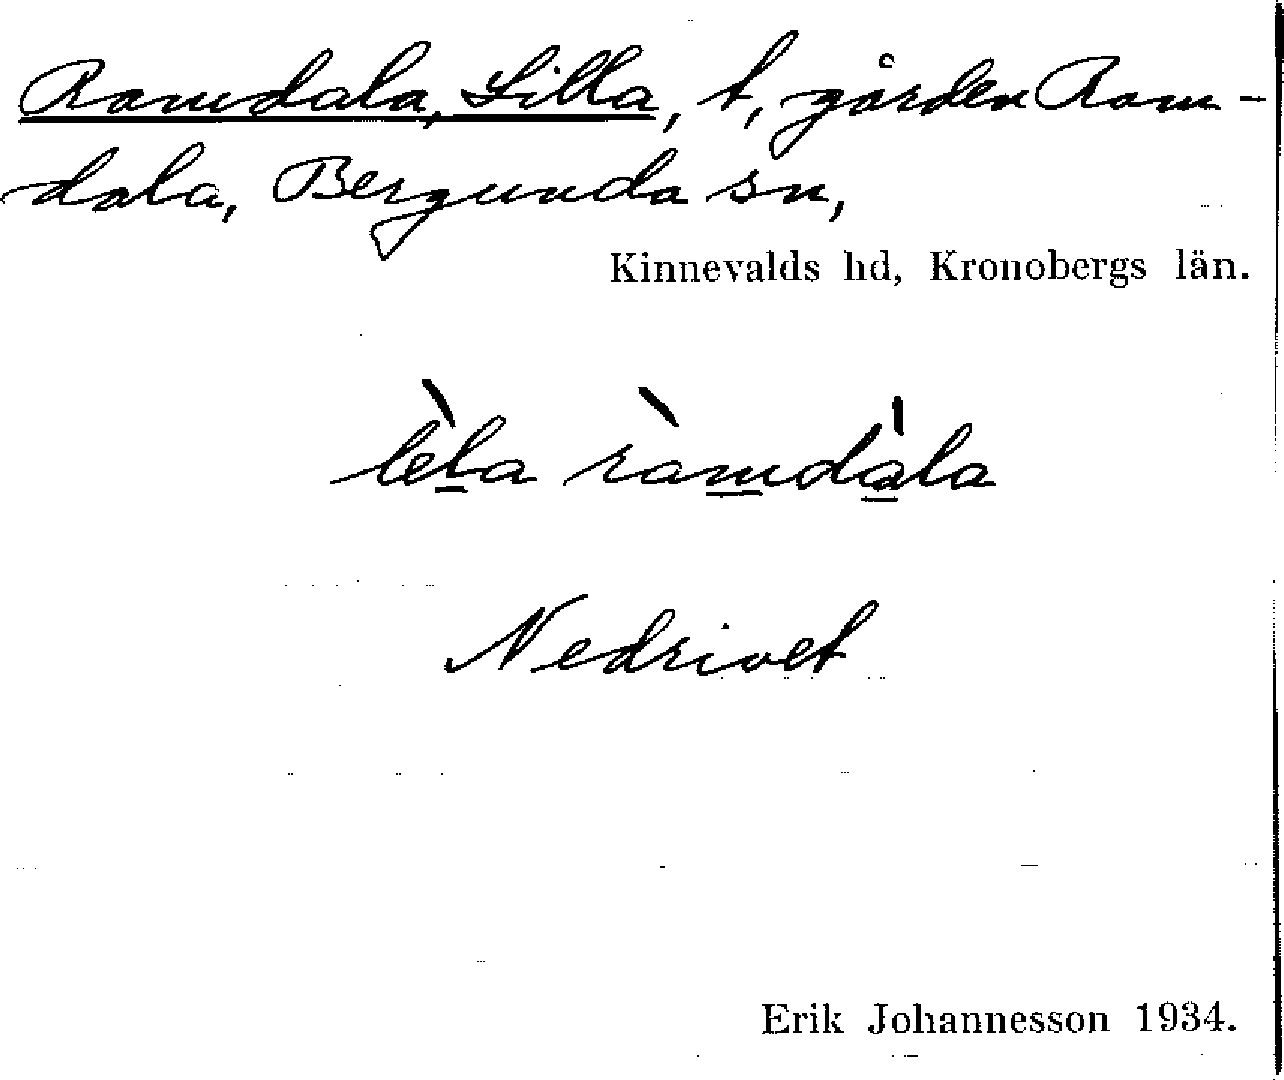 Ramdala, Lilla, t, gården Ram-
dala, Bergunda sn,
Kinnevalds hd, Kronobergs län.
lèl̲a ràm̲da̲̍la
Nedrivet
Erik Johannesson 1934.